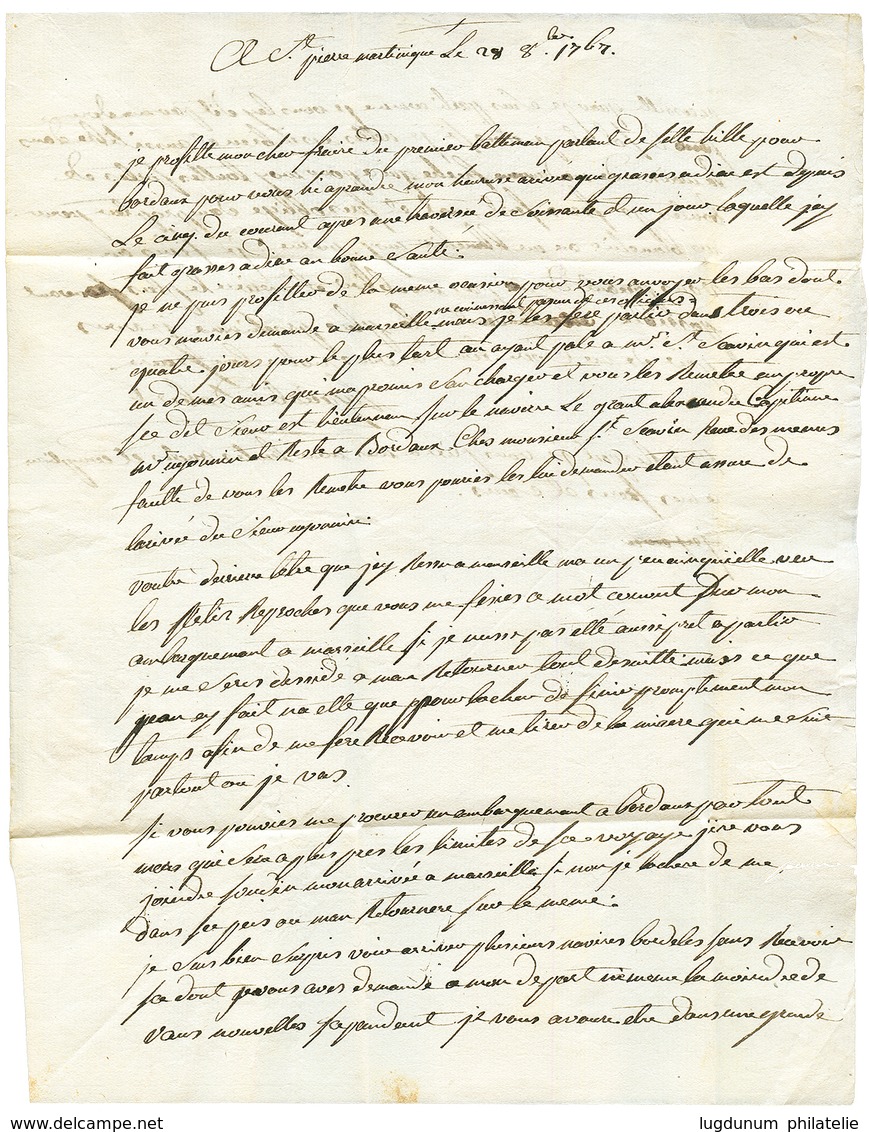 A St. pierre martinique Le 28 8bre. 1767.
je profitte mon cher freire du premier battiman partant de sette ville pour
bordaux pour vous fre aprandre mon heuruse arrivé qui graces a dieu est depuis
Le cinq du courant apres une traversée de Soissante et un jour laquelle jay
fait grasses a dieu an bonne Santé.
je ne puis profitter de la meme ocasion pour vous anvoyer les bas dont
ne conoissant persone de ces officiers
vous mavies demandé a marseille mais je les feré partir dans trois ou
quatre jours pour le plus tart an ayant palé a mr. St. Savin qui est
un de mes amis qui ma promis San charger et vous les Remetre an propre
se dit Sieur est lieutenan sur le navirre Le grant alexandre Capitaine
mr mjonnin et Reste a Bordaux Ches monsieur St. Savin Rue des menus
faulte de vous les Remetre vous pouries les lui demander etant assuré de
larivée du Sieur mjonnin.
voutre derniere letre que jay Ressu a marseille ma un peu ainquielle veu
les Petis Reproches que vous me feries a mot cervont Pour mon
ambarquement a marseille si je nusse pas etté aussi pret a partir
je me Seres dessidé a man Retourner tout desuitte mais ce que
jean ey fait na etté que pour tacher de finir promptement mon
tamps afin de me fere Recevoir et me tirer de la misere qui me suit
partout ou je vas.
si vous pouvies me procurer un ambarquement a bordaux par tout
mars que Sera a peu pres les limites de se voyage jire vous
joindre soudin mon arrivée a marseille si non je tacheré de me
dans se peis ou man Retournere sur le meme.
je Suis bien Surpris voir arriver plusieurs navires bordeles sans Recevoir
se dont je vous aves demandé a mon depart ni meme la moindre de
vaus nouvelles sepandant je vous avoure etre dans une grande